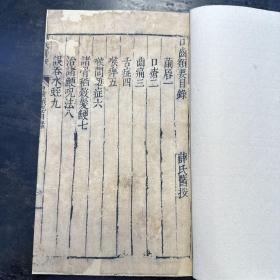 口齒類要目錄
薛氏醫按
繭唇一
口瘡二
齒痛三
舌症四
喉痺五
喉間雜症六
諸骨稻穀髮鯁七
治諸鯁呪法八
誤吞水蛭九